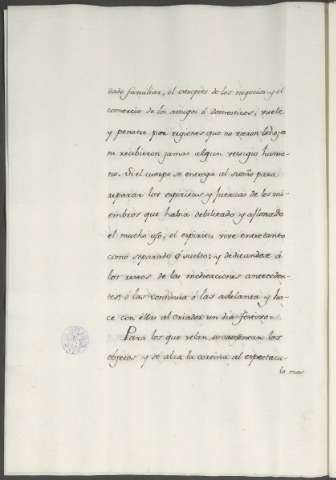 dado familiar, el tropiés de los negocios y el
comercio de los amigos ó domesticos, vuele
y penetre por regiones que no vieron los ojos
ni recibieron jamas algun vestigio huma-
no. Si el cuerpo se entrega al sueño para
reparar los espiritus y fuerzas de los mi-
embros que habia debilitado y aflojado
el mucho uso, el espiritu vive entretanto
como separado ó suelto; y dedicandose á
los restos de las meditaciones anteceden-
tes ó las continúa ó las adelanta y ha-
ce con ellas al criador un dia festivo.
Para los que velan se ven los
objetos y se alza la cortina al espectacu-
lo mas